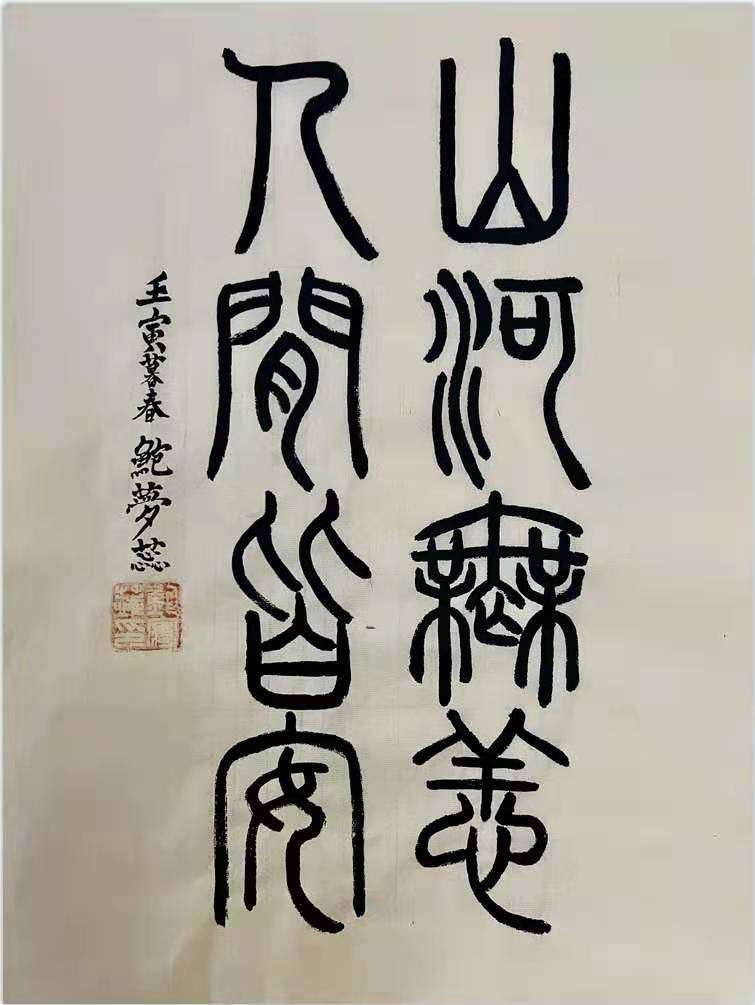 山河無恙
人間皆安
壬寅暮春 鮑夢蕊